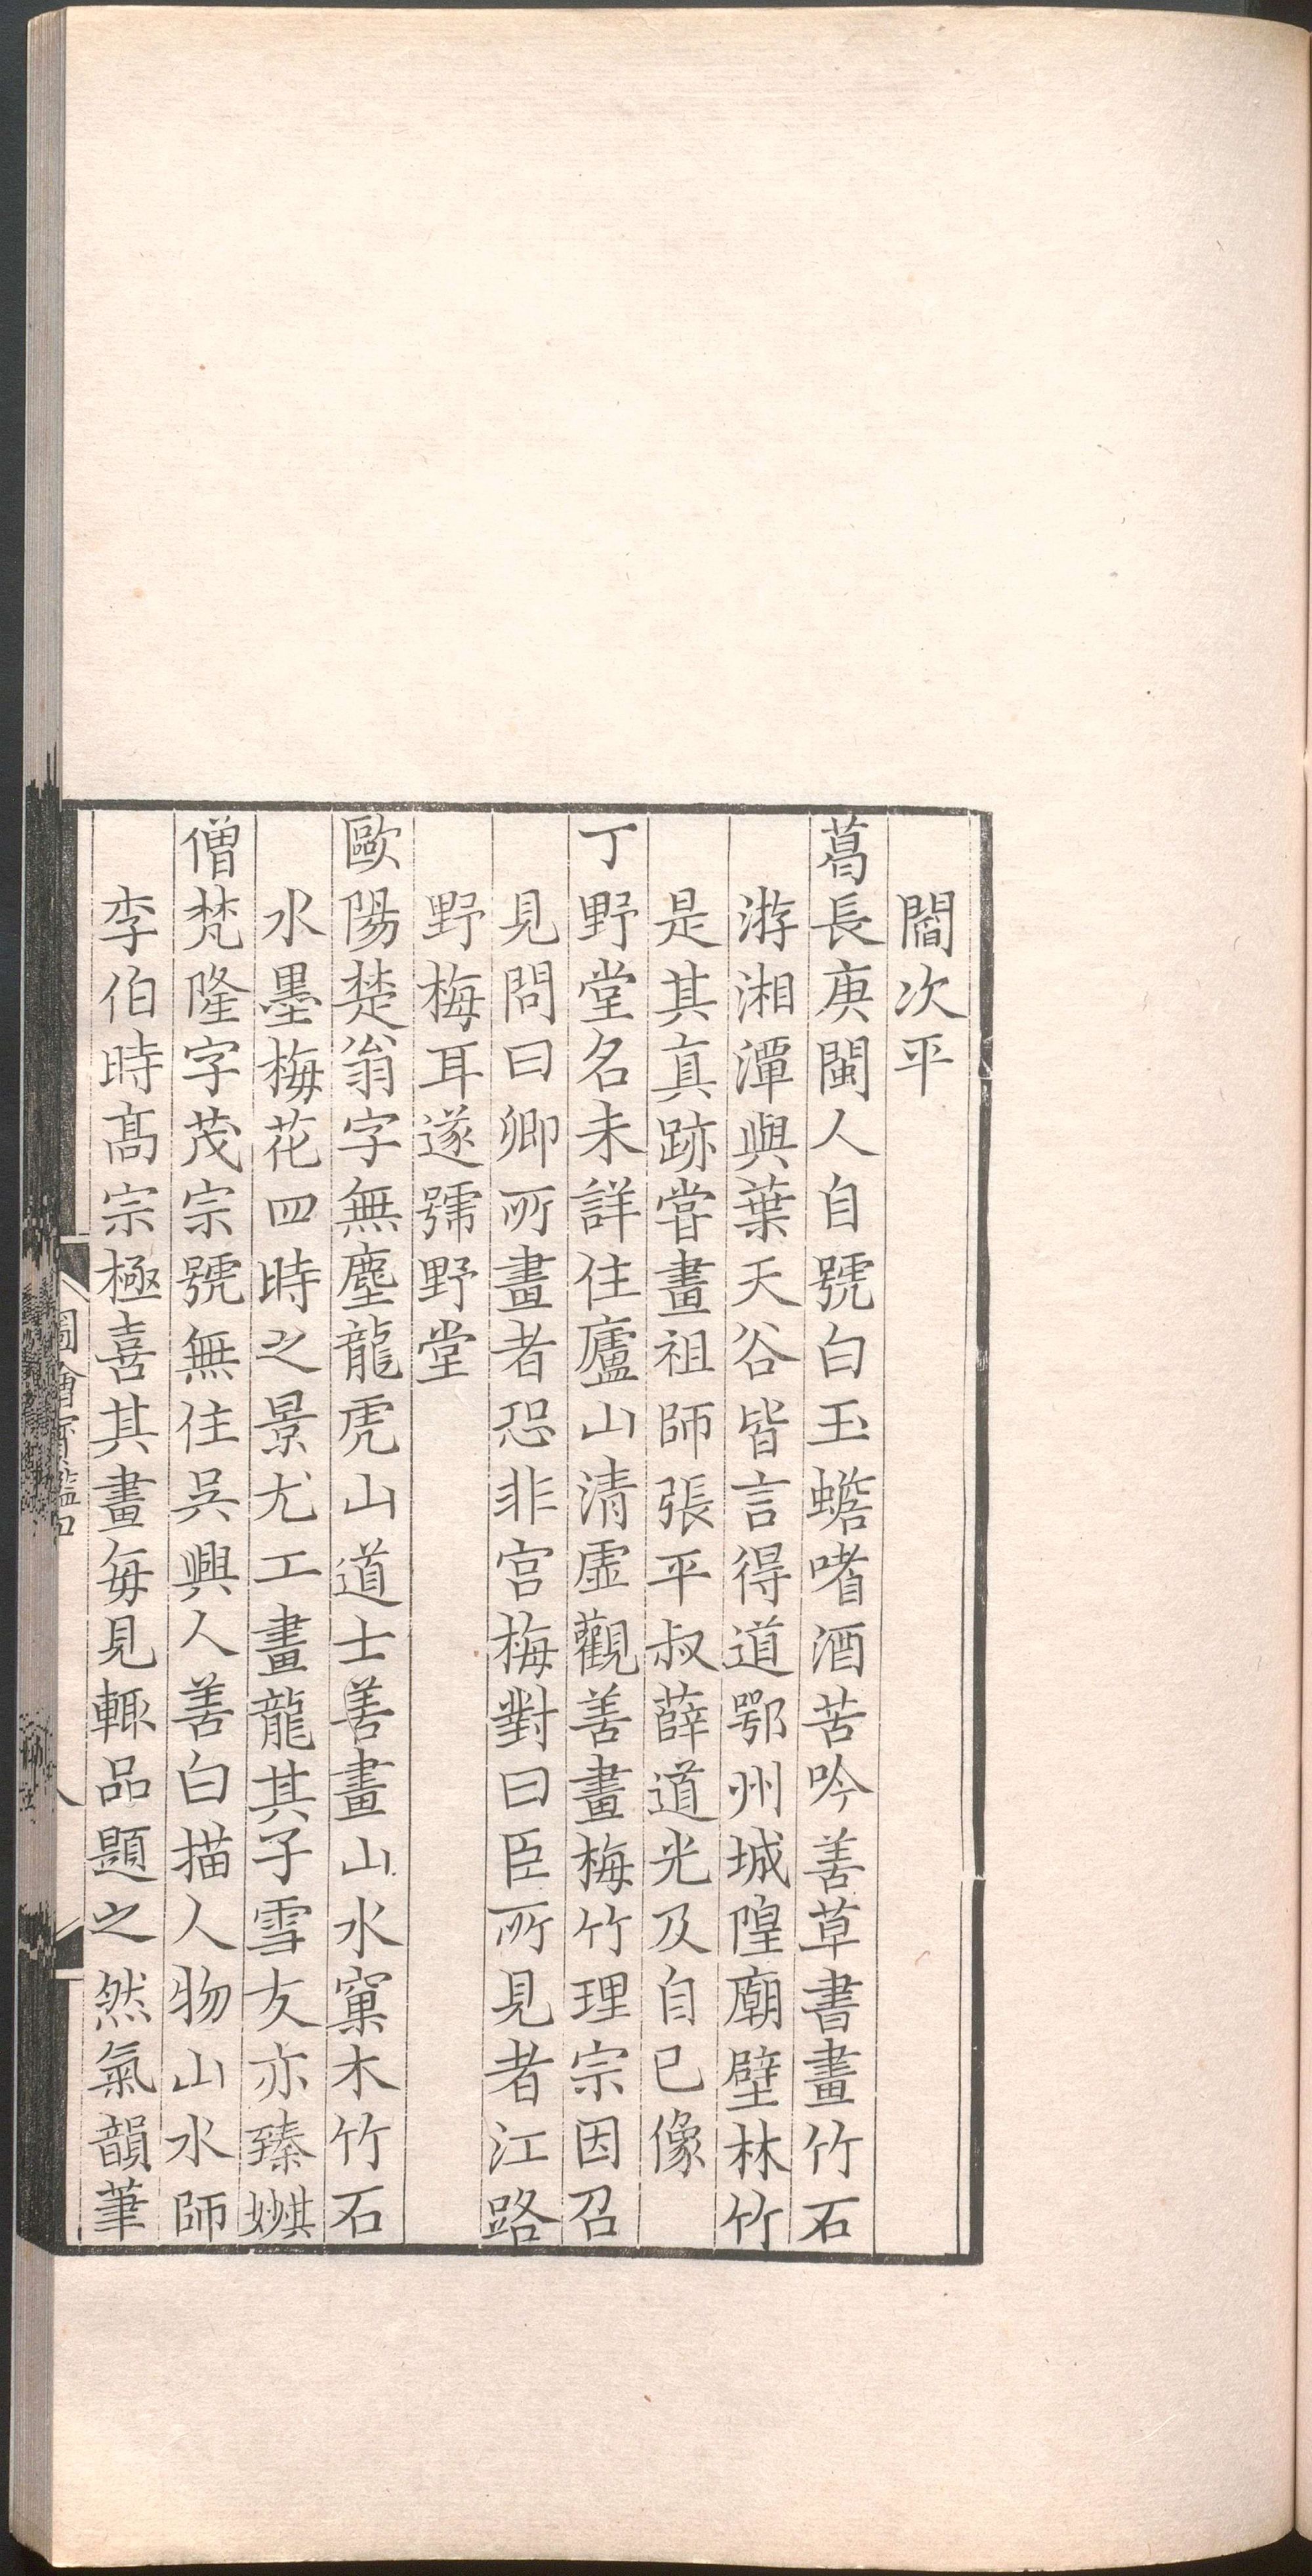 閻次平
葛長庚閩人自號白玉蟾嗜酒苦吟善草書畫竹石
游湘潭與葉天谷皆言得道鄂州城隍廟壁林竹
是其真跡嘗畫祖師張平叔薛道光及自已像
丁野堂名未詳住廬山清虛觀善畫梅竹理宗因召
見問曰卿所畫者恐非宮梅對曰臣所見者江路
野梅耳遂號野堂
歐陽楚翁字無塵龍虎山道士善畫山水窠木竹石
水墨梅花四時之景尤工畫龍其子雪友亦臻妙其
僧梵隆字茂宗號無住吳興人善白描人物山水師
李伯時髙宗極喜其畫每見輒品題之然氣韻筆
圖繪寶鑑